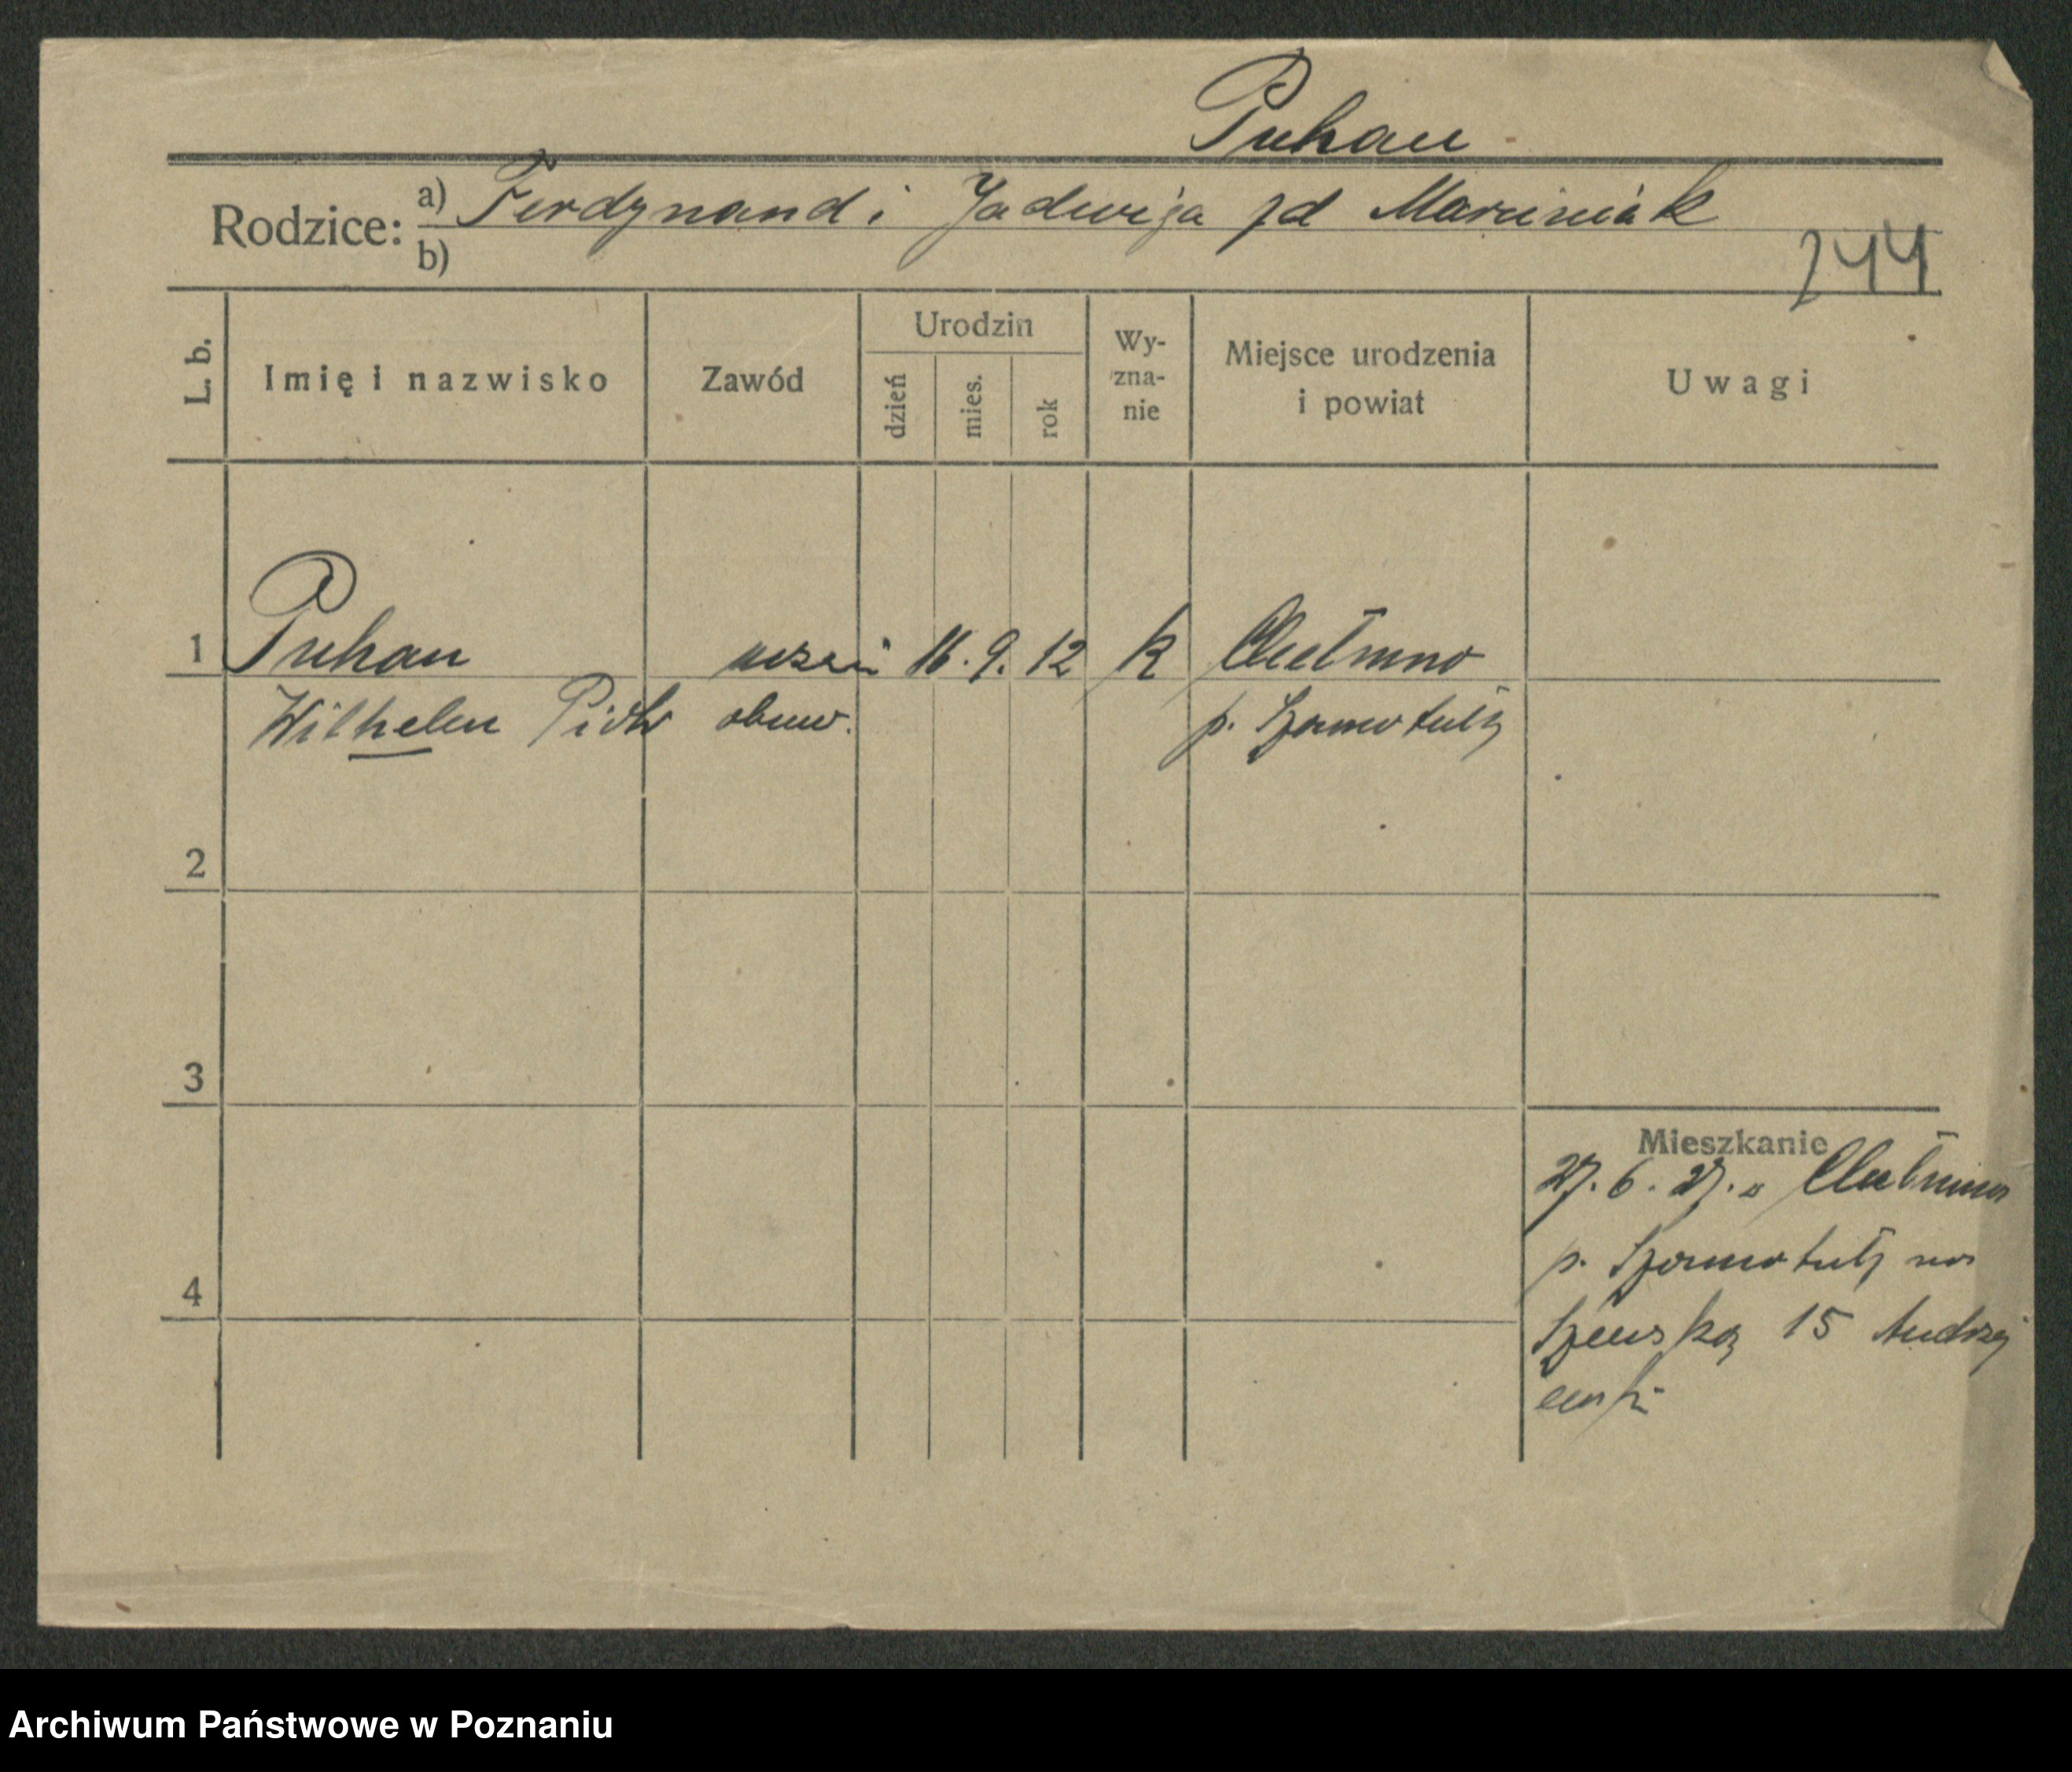 Puhan
Rodzice: a) Ferdynand i Jadwiga zd Marciniak
b)
244
L. b. Imię i nazwisko Zawód Urodzin dzień mies. rok Wy-zna-nie Miejsce urodzenia i powiat Uwagi
1 Puhan uczeń 16. 9. 12 k Chełmno
Wilhelm Piotr obuw. p. Szamotuły
2
3
Mieszkanie
27. 6. 27. z Chełmna
p. Szamotuły na
4
Szewską 15 Andrzej
ewski
Archiwum Państwowe w Poznaniu